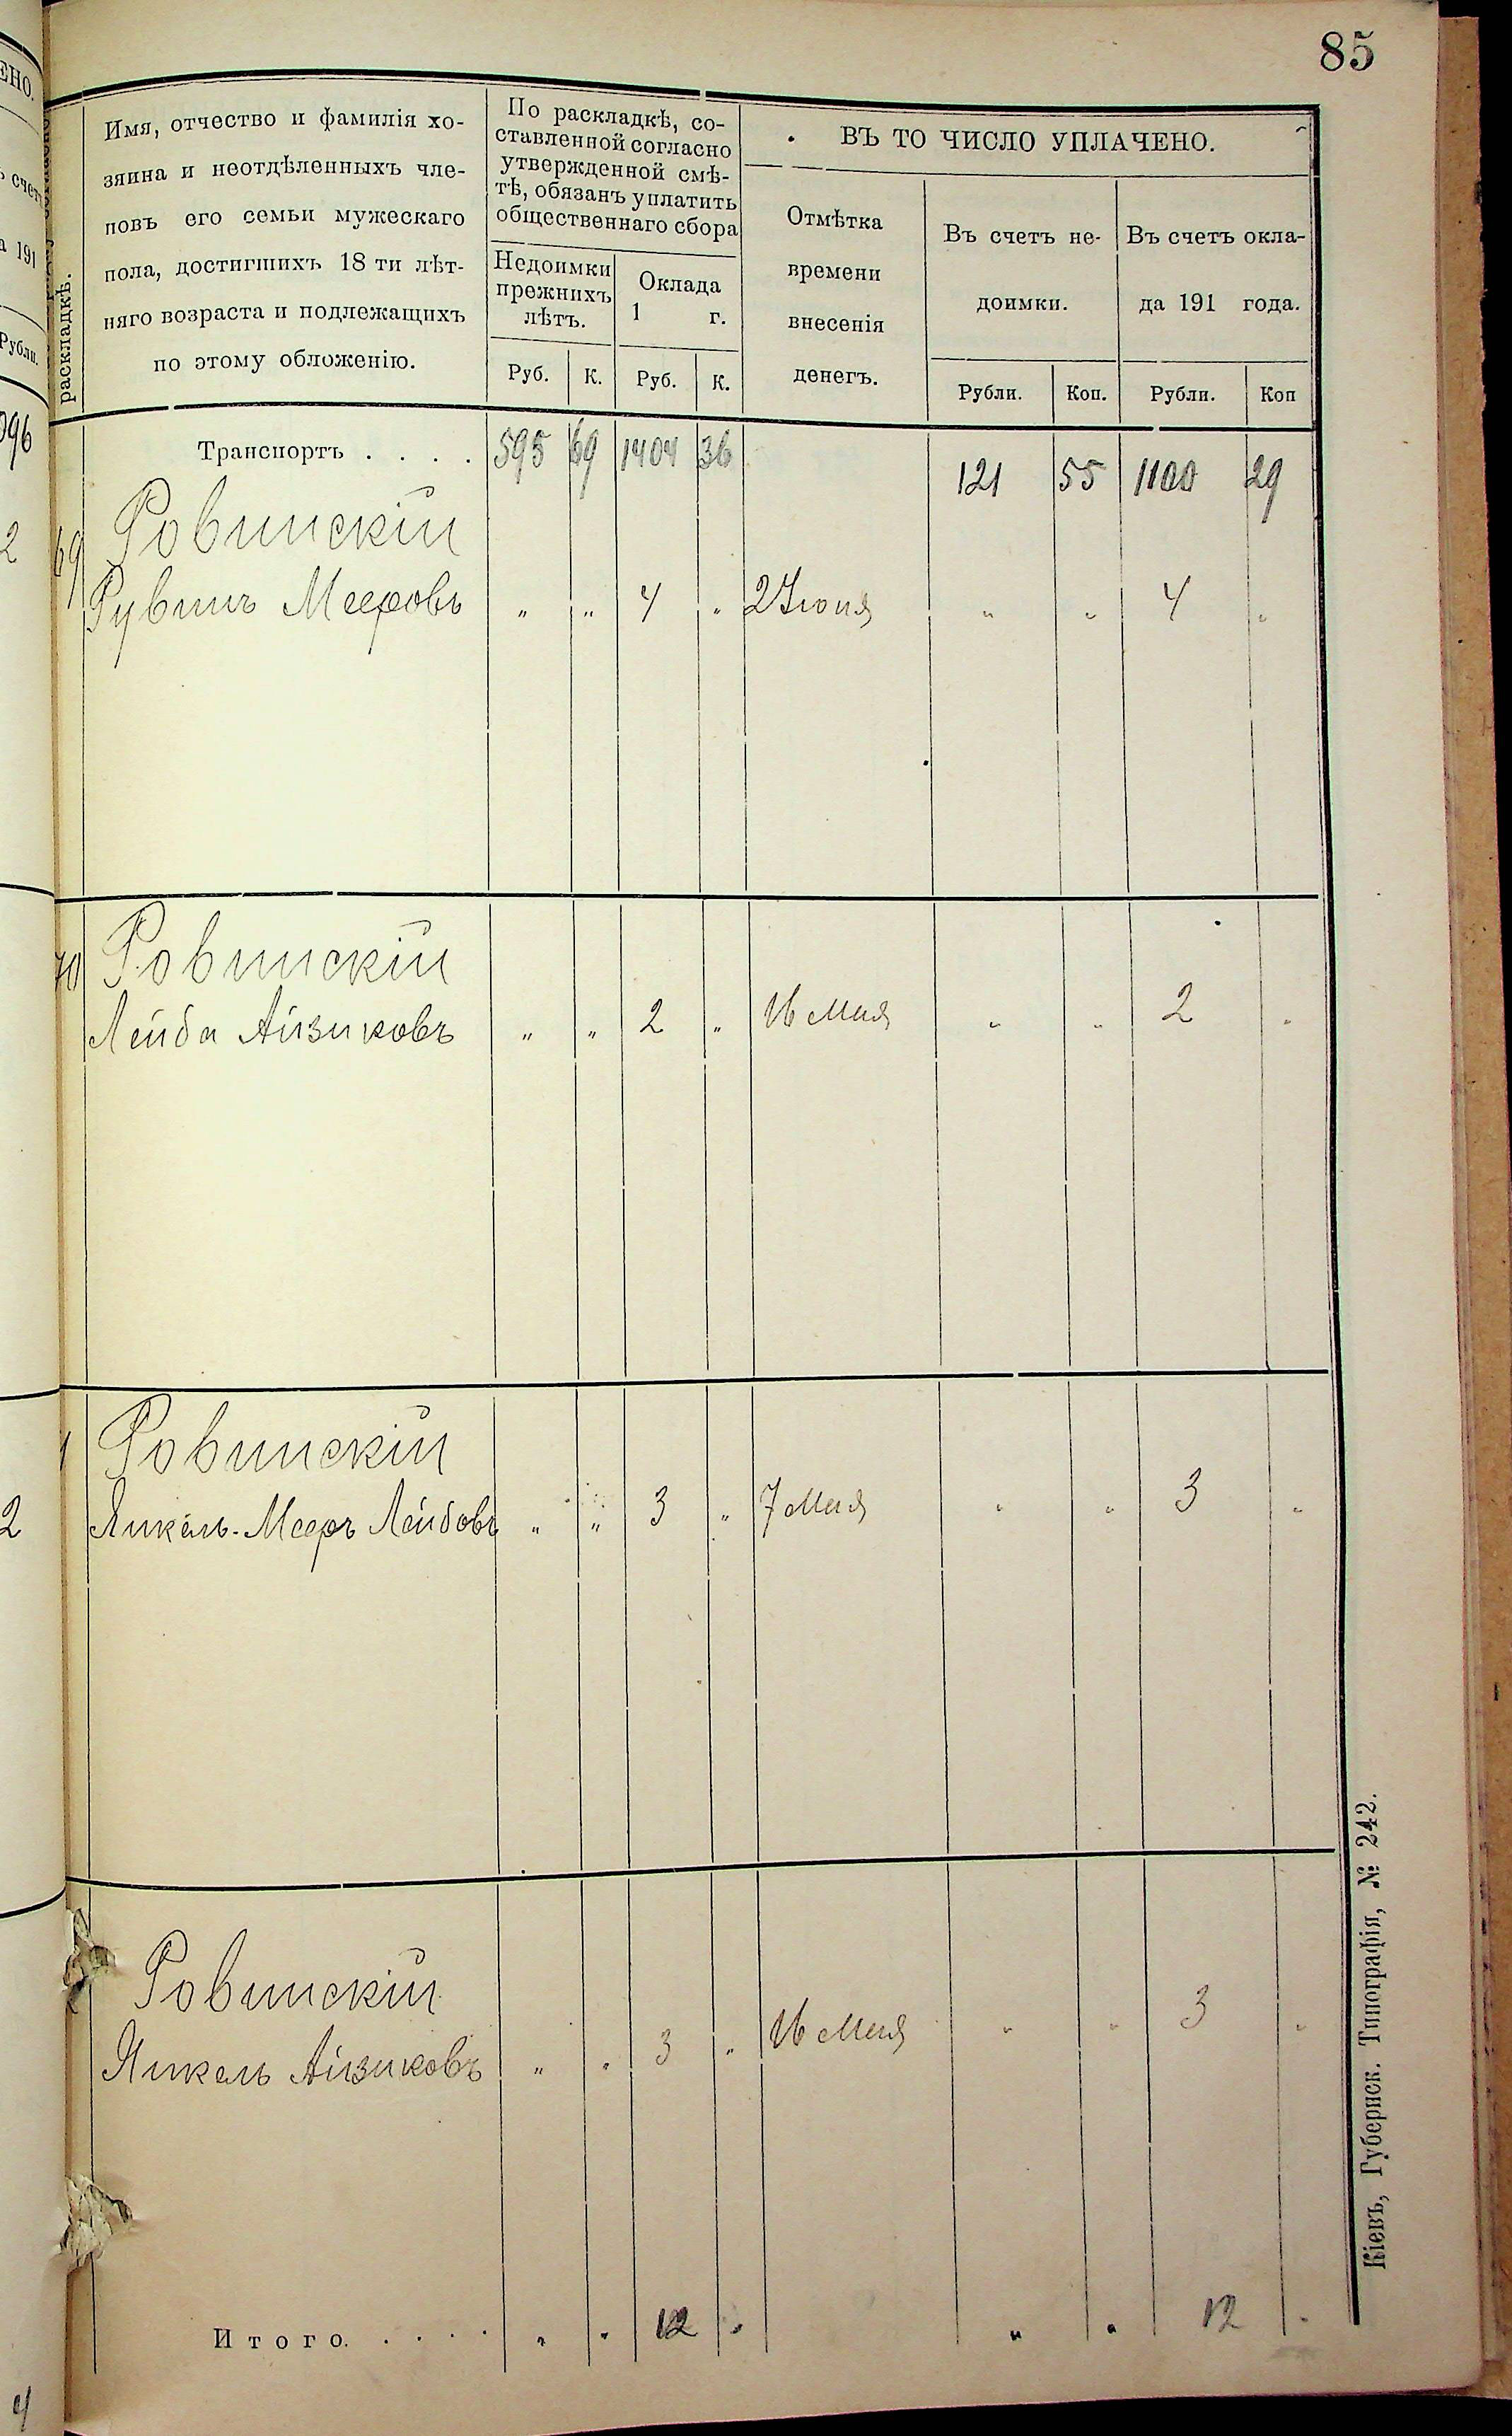 85
раскладкѣ.
Имя, отчество и фамилія хо-
зяина и неотдѣленныхъ чле-
новъ его семьи мужескаго
пола, достигшихъ 18 ти лѣт-
няго возраста и подлежащихъ
по этому обложенію.
По раскладкѣ, со-
ставленной согласно
утвержденной смѣ-
тѣ, обязанъ уплатить
общественнаго сбора
Недоимки
прежнихъ
лѣтъ.
Оклада
1 г.
Руб. К. Руб. К.
ВЪ ТО ЧИСЛО УПЛАЧЕНО.
Отмѣтка
времени
внесенія
денегъ.
Въ счетъ не-
доимки.
Въ счетъ окла-
да 191 года.
Рубли. Коп. Рубли. Коп
Транспортъ . . . . 595 69 1404 36 121 55 1100 29
69 Ровинскій
Рувинъ Мееровъ „ „ 4 „ 2 Іюня „ „ 4 „
70 Ровинскій
Лейба Айзиковъ „ „ 2 „ 16 Мая „ „ 2 „
1 Ровинскій
Янкель-Мееръ Лейбовъ „ „ 3 „ 7 Мая „ „ 3 „
Ровинскій
Янкель Айзиковъ „ „ 3 „ 16 Мая „ „ 3 „
Итого. . . . . „ „ 12 „ „ „ 12 „
Кіевъ, Губернск. Типографія, № 242.